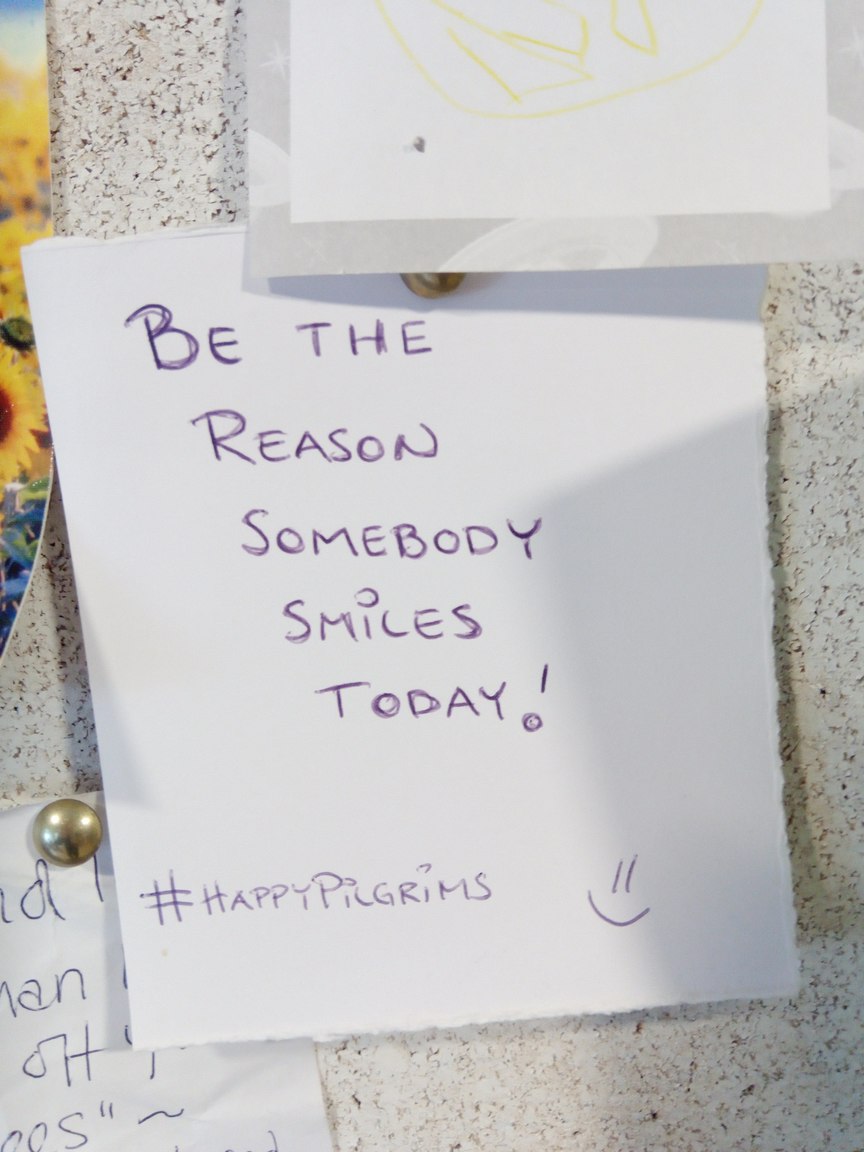 BE THE
REASON
SOMEBODY
SMILES
TODAY!
#HAPPYPILGRIMS
off